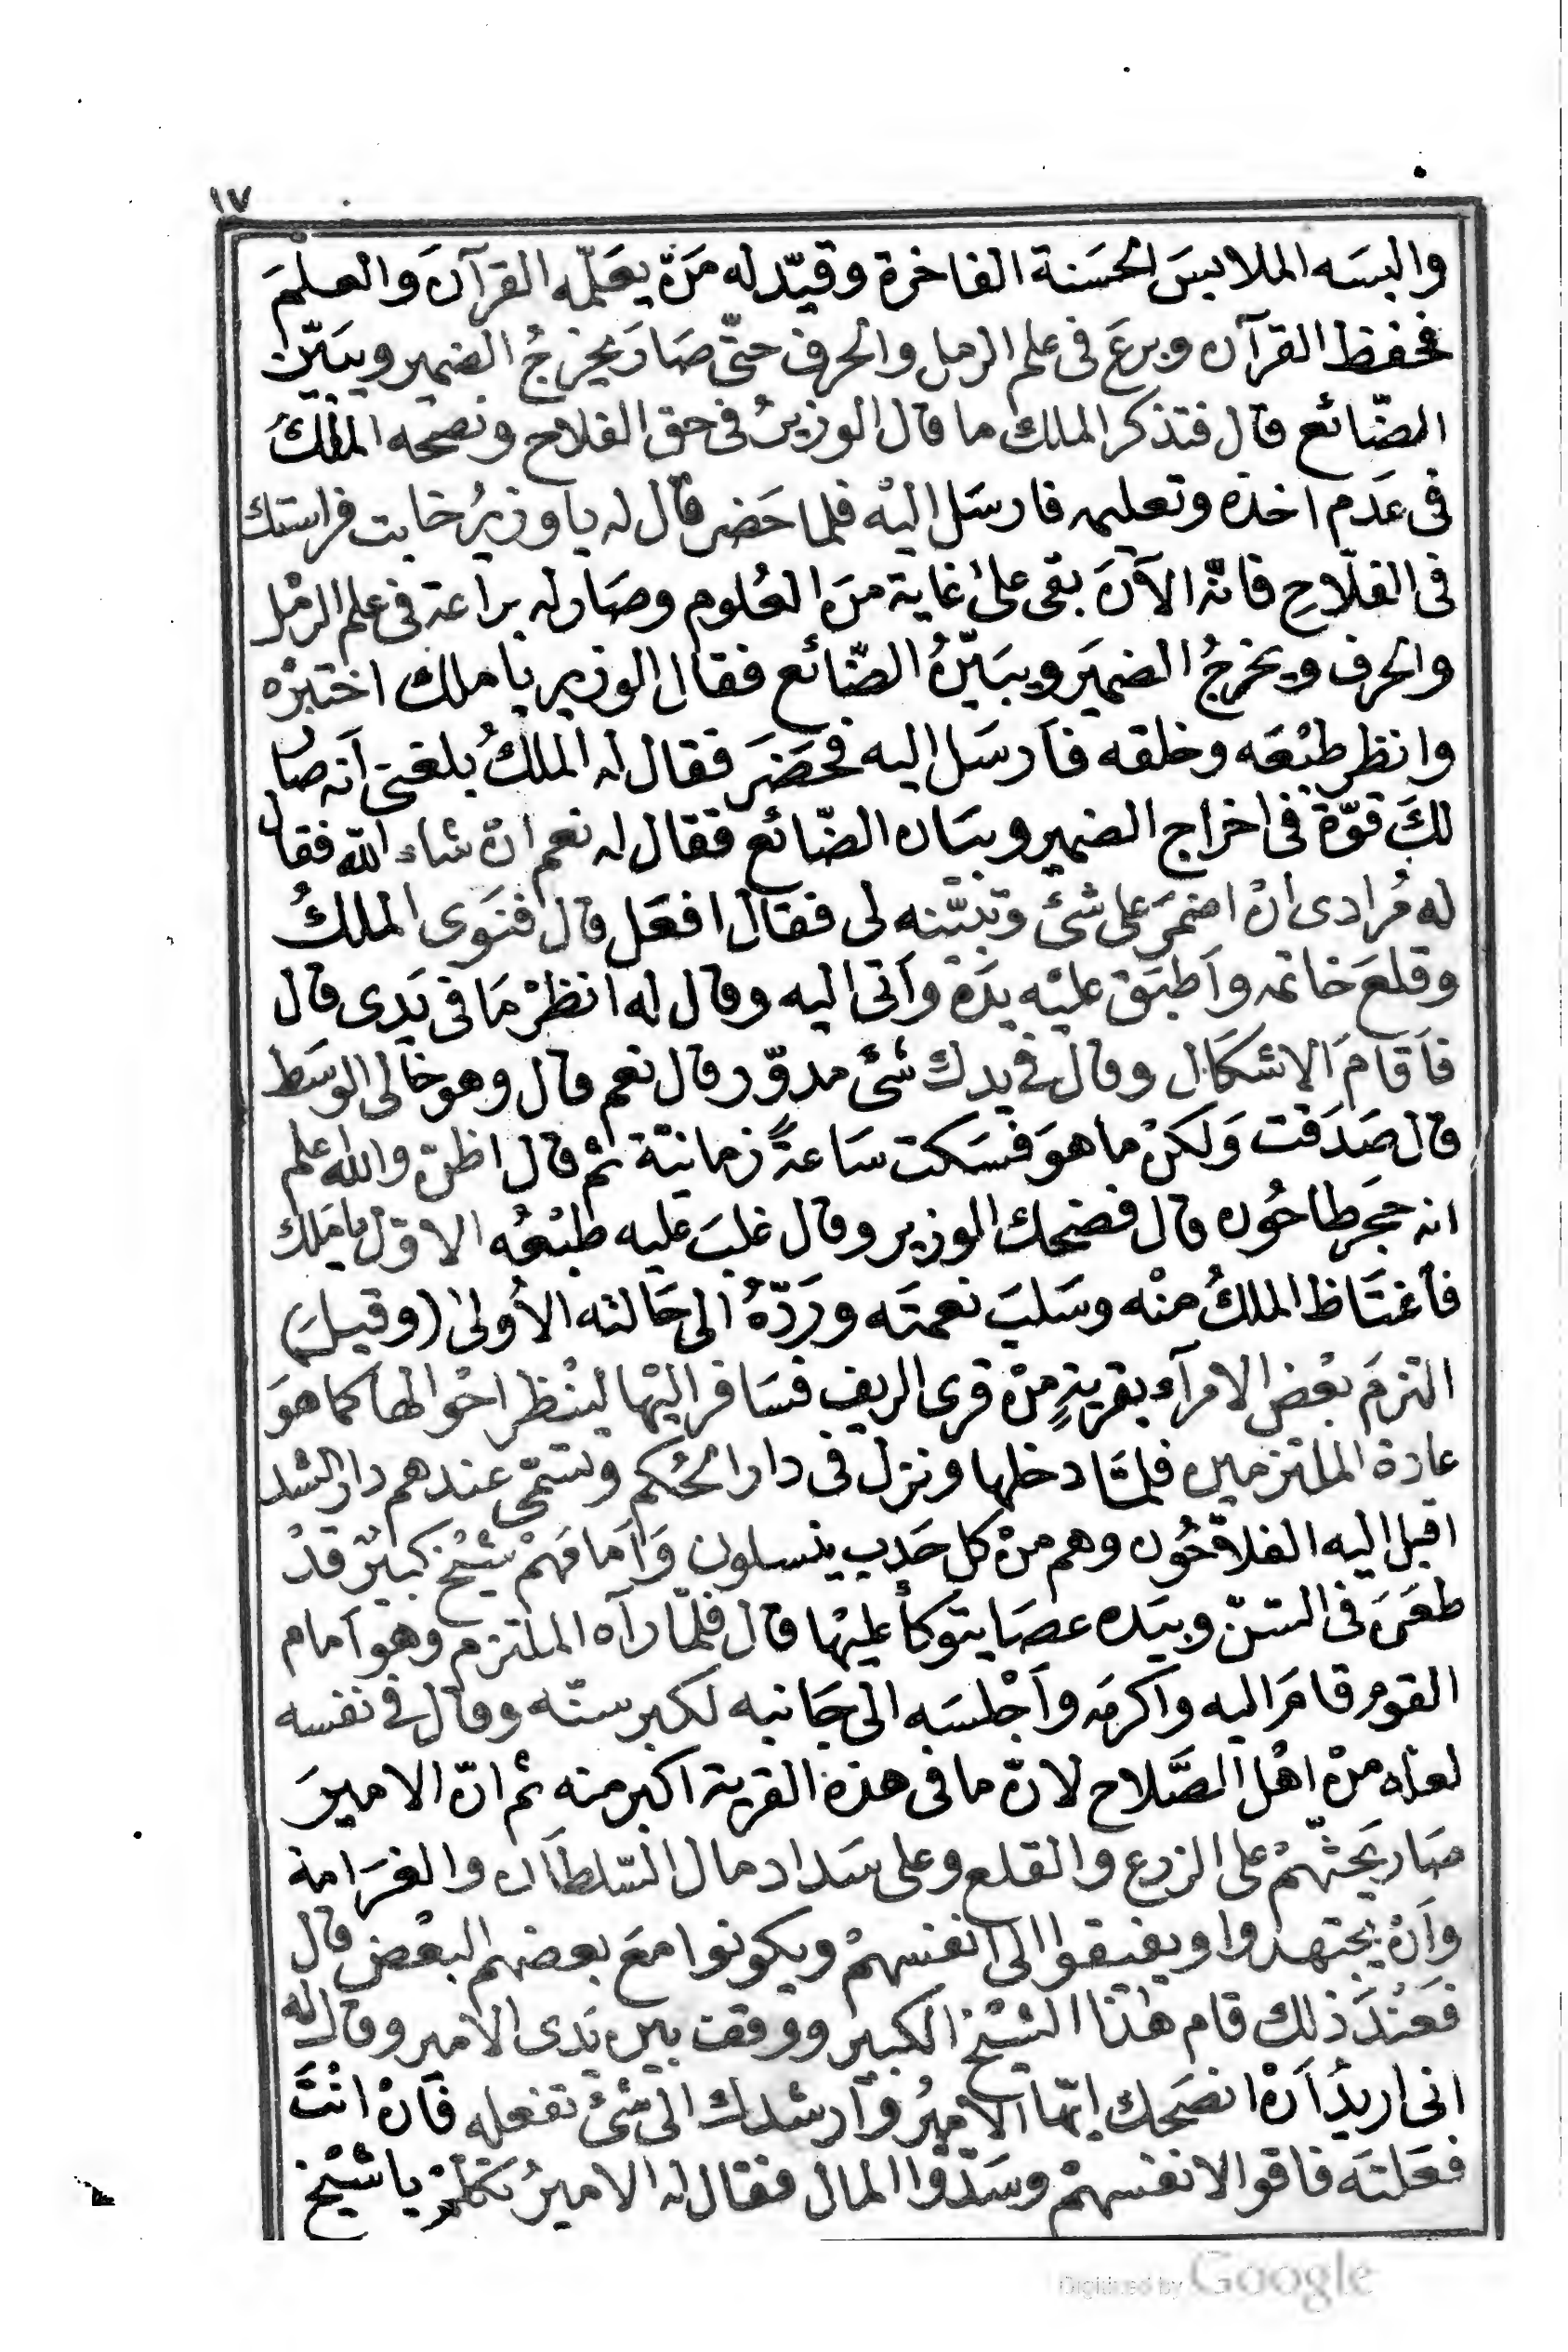 ١٧
والبسَه الملابسَ الحسَنة الفاخرة وقيّد له مَنْ يعَلمّه القرآنَ والعلمَ
فحفظ القرآن وبرعَ فى علم الرمل والحرف حتّى صَارَ يخرجُ الضمير ويبَيّن
الضّائع قال فتذكر الملك ما قال الوزيرُ فى حق الفلاح ونصحه الملكُ
فى عَدم اخذه وتعليمه فارسَل اليْه فلما حَضر قال له يا وزيرُ خابت فراستك
فى الفلّاحِ فانّه الآنَ بقى على غاية منَ العُلوم وصَار له براعة فى علم الرمْل
والحرف ويخرجُ الضميَر ويبَيّنُ الضّائع فقال الوزير يا ملك اختبرْه
وانظر طبْعَه وخلقه فاَرسَل اليه فحَضَرَ فقال له الملكُ بلغنى اَنه صار
لكَ قوّة فى اخراج الضمير وبيَان الضّائع فقال له نعم انْ شاء الله فقال
له مُرادى انْ اضمرَ على شئ وتبيّنه لى فقال افعَل قال فنَوى الملكُ
وقلعَ خاتمه واَطبَق عليْه يدَهْ واَتى اليه وقال له انظرْ مَا فى يَدى قال
فاَقامَ الاشكال وقال فى يدك شئ مدوّر قال نعم قال وهو خالى الوسَط
قال صَدَقت وَلكنْ ما هوَ فسَكت سَاعةً زمانيّة ثمْ قال اظنّ والله علم
انه حجر طاحُون قال فضحك الوزير وقال غلبَ عليه طبْعُه الاوّل يا مَلك
فاَغتَاظ الملكُ منْه وسَلبَ نعمتَه ورَدّهُ الى حَالته الاُولى (وقيلَ)
التزمَ بعْض الامرآء بقريةٍ منْ قرى الريف فسَافر اليْها لينْظر احْوالها كما هوَ
عادة الملتزمين فلمّا دخلها ونزل فى دار الحُكم وتسَمّى عندهم دار الشد
اقبل اليه الفلاحُون وهم منْ كل حَدب ينسلون وَاَمامَهمْ شيْخ كبيرٌ قدْ
طعَنَ فى السّنّ وبيَده عصَا يتوكأ عليْها قال فلمّا رآه الملتزم وهو اَمام
القوم قامَ اليه واَكرمَه واَجْلسَه الى جَانبه لكبر سنّه وقال فى نفسه
لعله منْ اهْل الصَّلاح لانّ ما فى هذه القرية اكبر منه ثم انّ الاميرَ
صَار يَحثّهمْ على الزرع والقلع وعلى سَداد مال السّلطاَن والغرَامة
واَنْ يجتهدُوا ويفيقوا الى انفسهمْ ويكونوا معَ بعضهم البعْض قال
فعَنْدَ ذلك قام هٰذا الشيْخ الكبير ووقف بين يَدى الامير وقال له
انى اريدُ اَنْ انصَحك ايّها الاميرُ واَرشدك الى شئ تفعله فاَنْ انْتَ
فعَلتَه فاقوا لانفسهمْ وسَدّوْا المال فقال له الاميرُ تكلمْ يا شيْخ
Digitized by Google